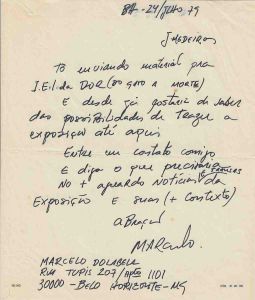 BH - 24/JULHO 79
J MEDEIROS
TÔ enviando material pra
I.E.I. da DOR (DO GOZO A MORTE)
E desde já gostaria de saber
das possibilidades de trazer a
exposição até aqui
Entre em contato comigo
E diga o que precisaria
No + aguardo notícias da
Exposição E suas (+ contexto)
abraços
Marcelo.
MARCELO DOLABELA
RUA TUPIS 207/apto 1101
30000 - BELO HORIZONTE - MG